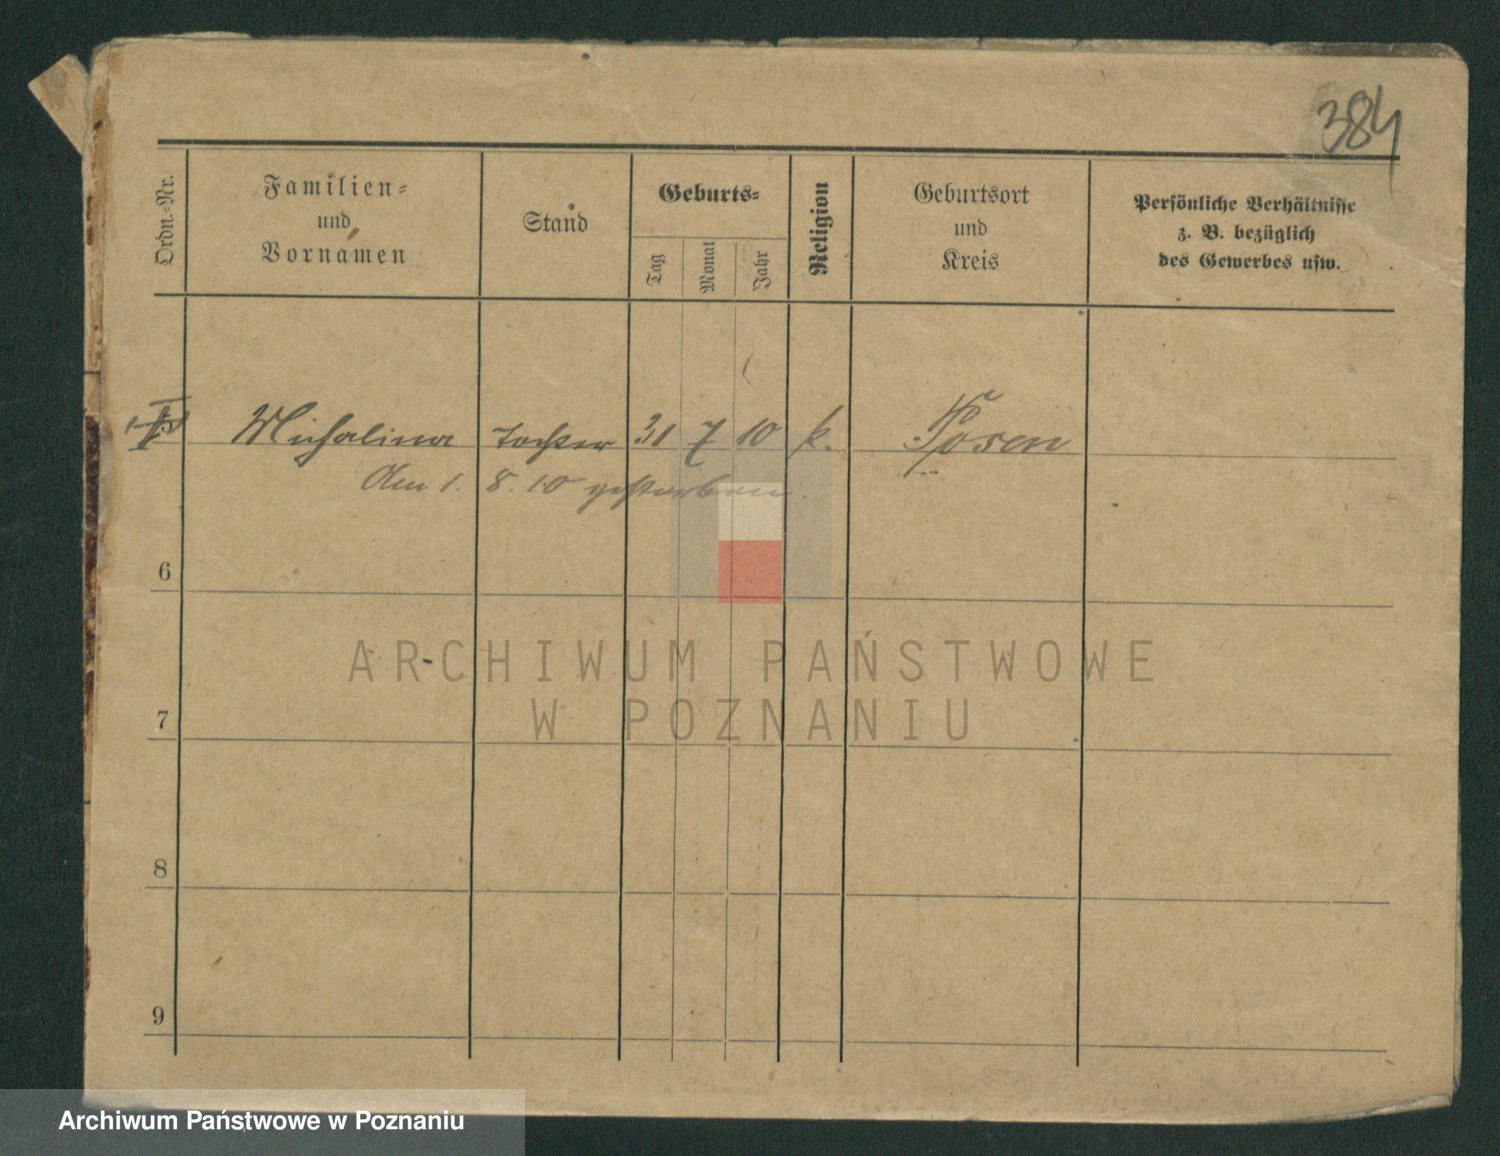 384
Ordn.-Nr.
Familien-
und
Vornamen
Stand
Geburts-
Tag
Monat
Jahr
Religion
Geburtsort
und
Kreis
Persönliche Verhältnisse
z. B. bezüglich
des Gewerbes usw.
Michalina Tochter 31 7 10 k. Posen
Am 1. 8. 10 gestorben.
6
ARCHIWUM PAŃSTWOWE
W POZNANIU
7
8
9
Archiwum Państwowe w Poznaniu